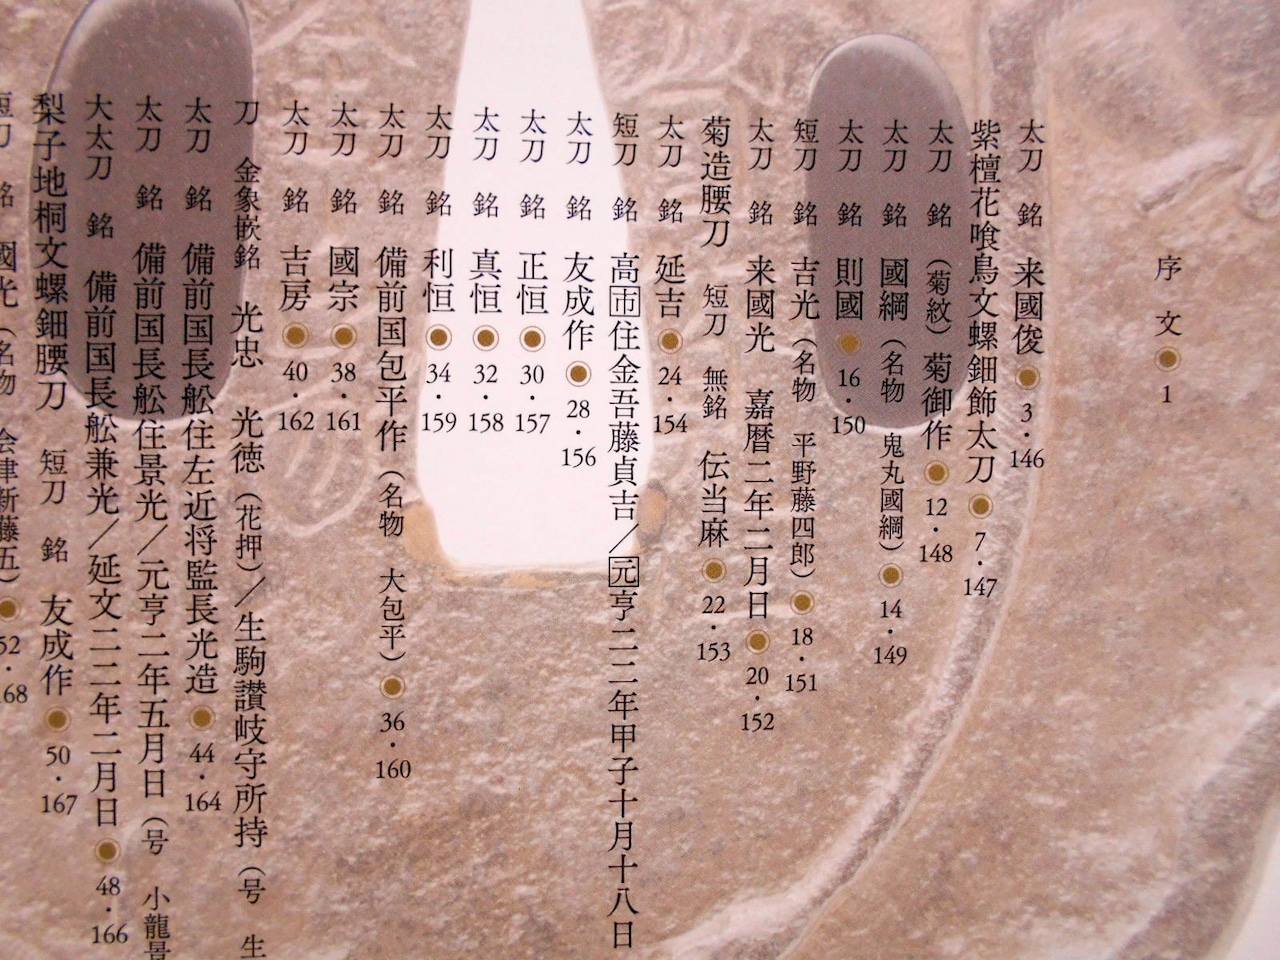 序文●1
太刀 銘 来国俊●3・146
紫檀花喰鳥文螺鈿飾太刀●7・147
太刀 銘（菊紋）菊御作●12・148
太刀 銘 國綱（名物 鬼丸國綱）●14・149
太刀 銘 則國●16・150
短刀 銘 吉光（名物 平野藤四郎）●18・151
太刀 銘 来國光 嘉暦二年二月日●20・152
菊造腰刀 短刀 無銘 伝当麻●22・153
太刀 銘 延吉●24・154
短刀 銘 高市住金吾藤貞吉／元亨二二年甲子十月十八日
太刀 銘 友成作●28・156
太刀 銘 正恒●30・157
太刀 銘 真恒●32・158
太刀 銘 利恒●34・159
太刀 銘 備前国包平作（名物 大包平）●36・160
太刀 銘 國宗●38・161
太刀 銘 吉房●40・162
刀 金象嵌銘 光忠 光徳（花押）／生駒讃岐守所持（号 生
太刀 銘 備前国長舩住左近将監長光造●44・164
太刀 銘 備前国長舩住景光／元亨二年五月日（号 小龍景
大太刀 銘 備前国長舩兼光／延文二二年二月日●48・166
梨子地桐文螺鈿腰刀 短刀 銘 友成作●50・167
短刀 銘 國光（名物 会津新藤五）●52・168